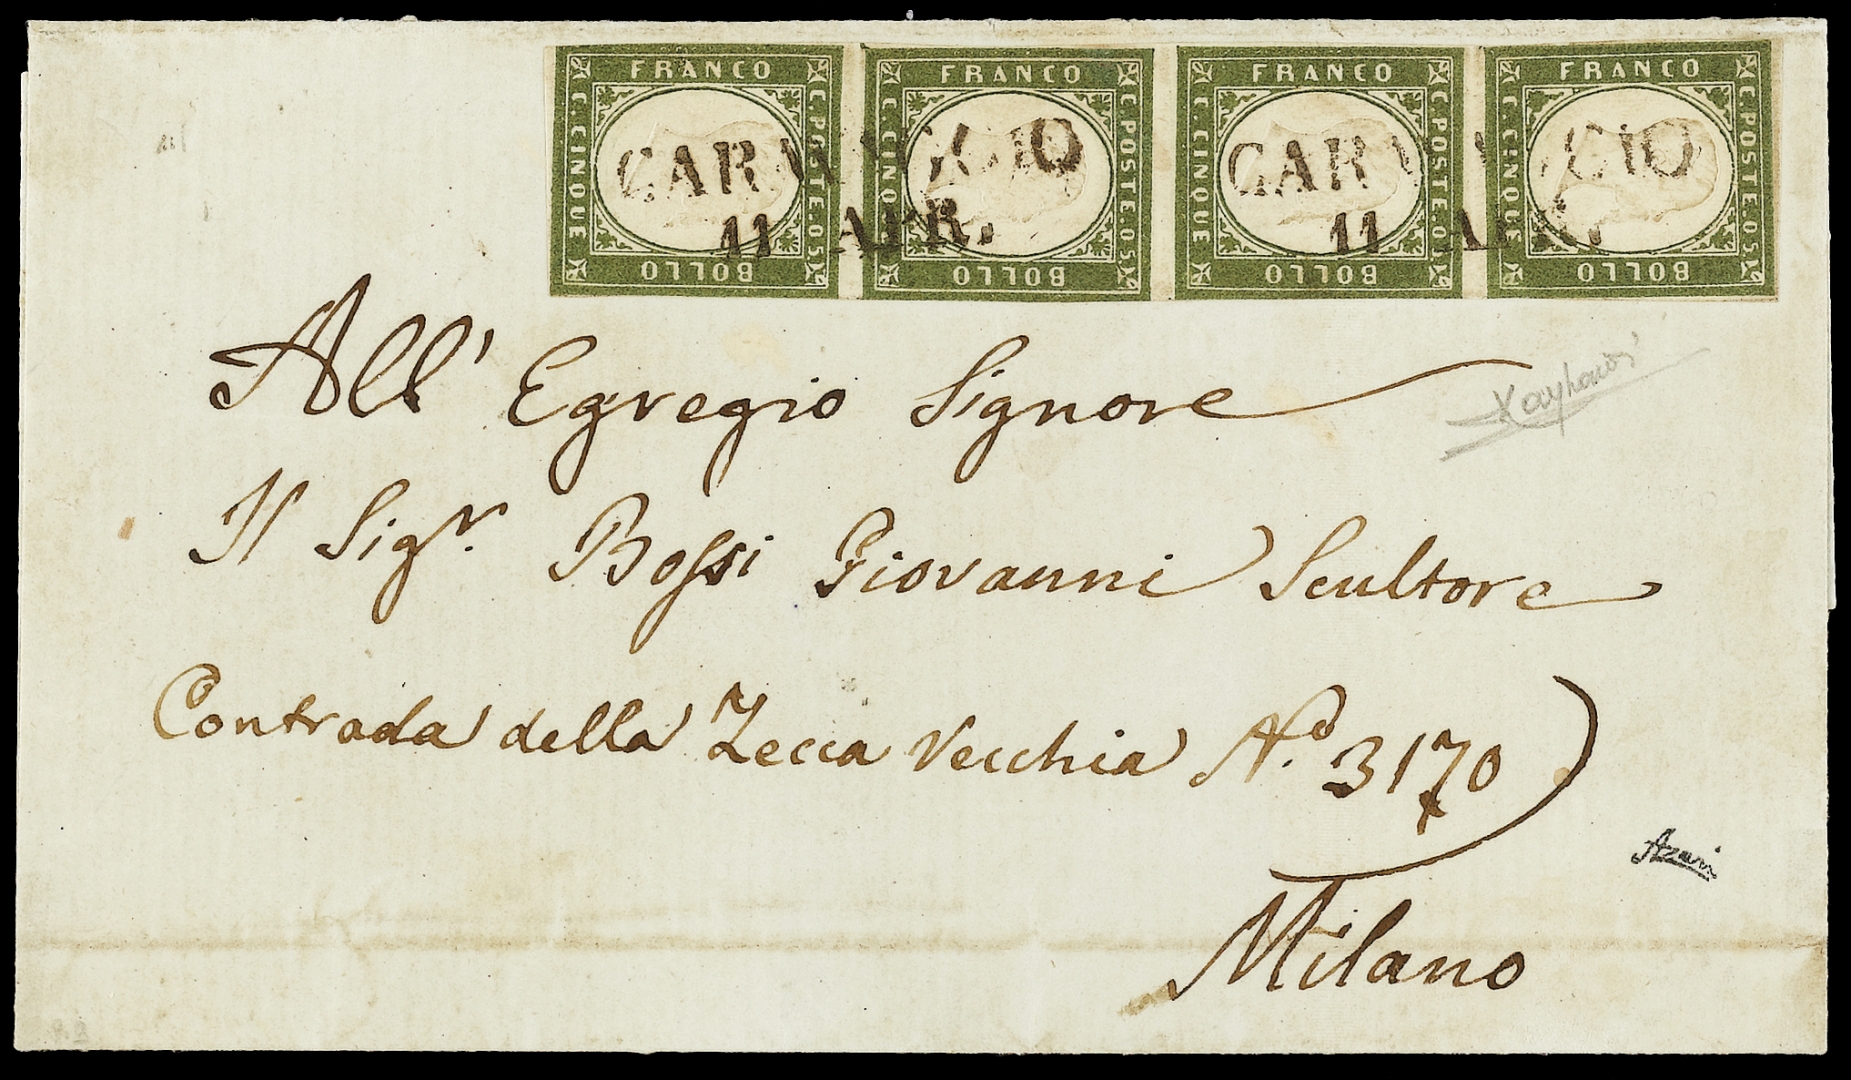 FRANCO FRANCO FRANCO FRANCO
C. CINQUE C. POSTE. 05 C. CINQUE C. POSTE. 05 C. CINQUE C. POSTE. 05 C. CINQUE C. POSTE. 05
BOLLO BOLLO BOLLO BOLLO
CARAVAGGIO CARAVAGGIO
11 APR. 11 APR.
All' Egregio Signore
Il Sigr. Bossi Giovanni Scultore
Contrada della Zecca Vecchia No. 3170
Milano
Azari